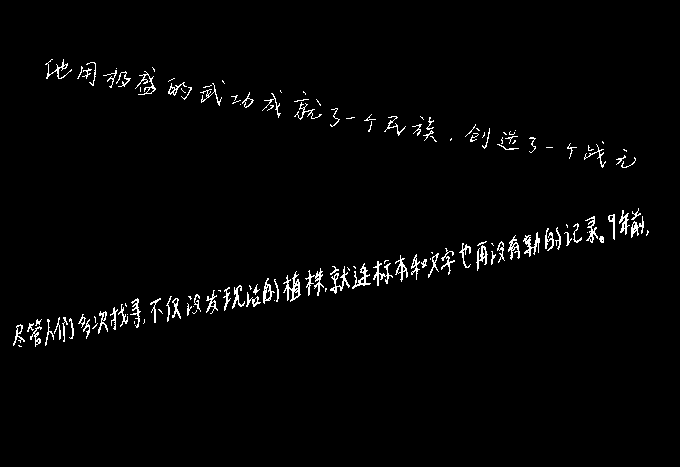 他用极盛的武功成就了一个民族,创造了一个战无
尽管人们多次找寻,不仅没发现活的植株,就连标本和文字也再没有新的记录。9年前,